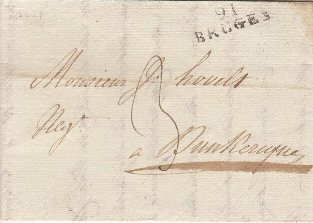 91
BRUGES
Monsieur J. hovelt
Neg.t
3
a Dunkerque